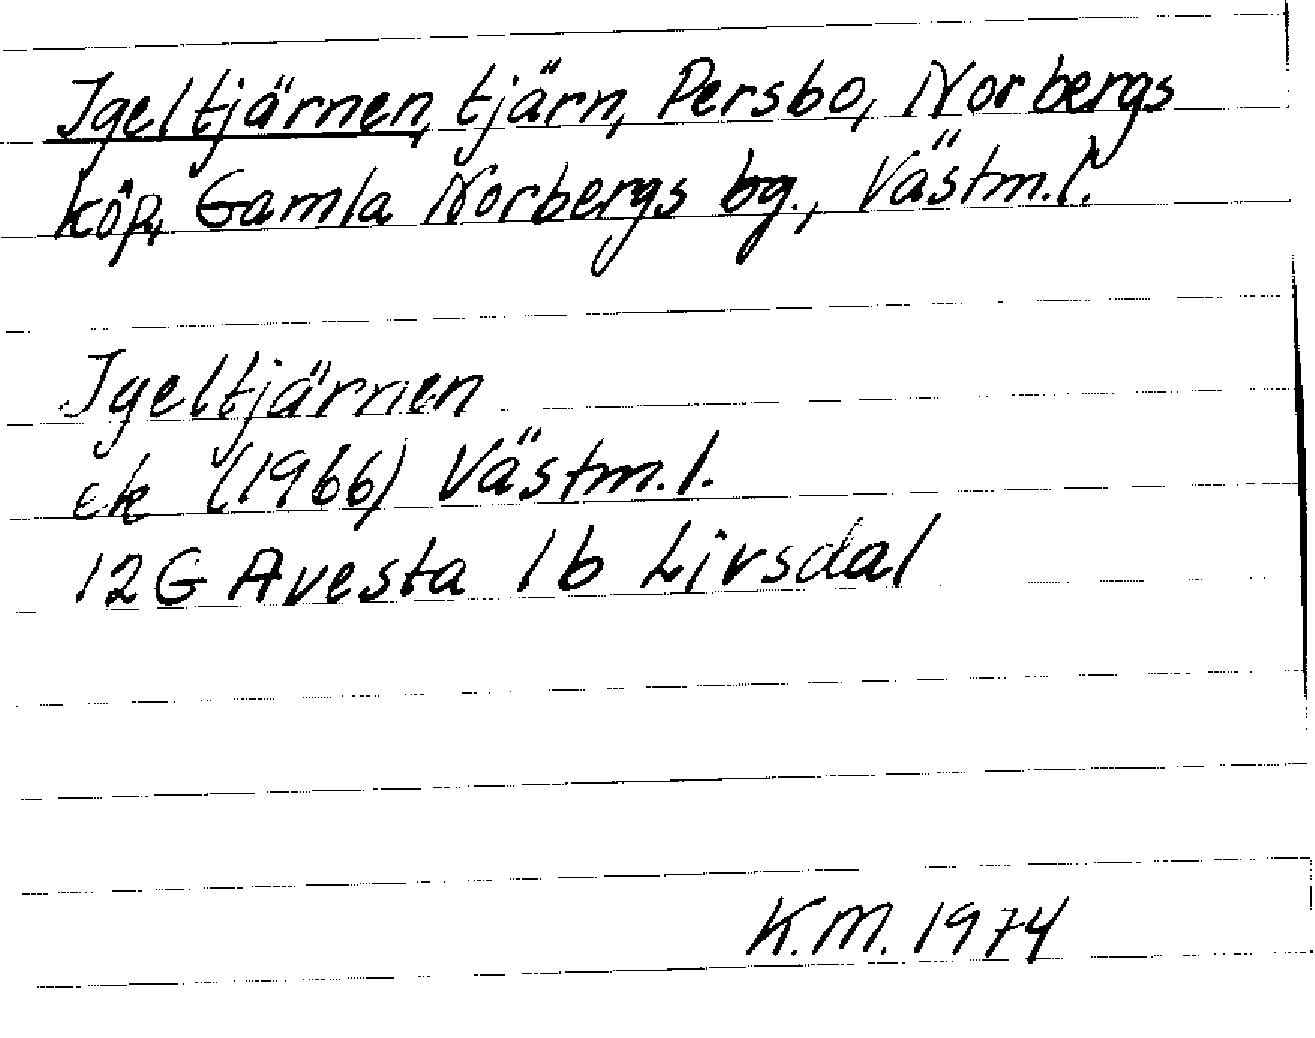 Igeltjärnen, tjärn, Persbo, Norbergs
köp, Gamla Norbergs bg., Västm.l.
Igeltjärnen
ek (1966) Västm.l.
12G Avesta 1b Livsdal
K.M. 1974